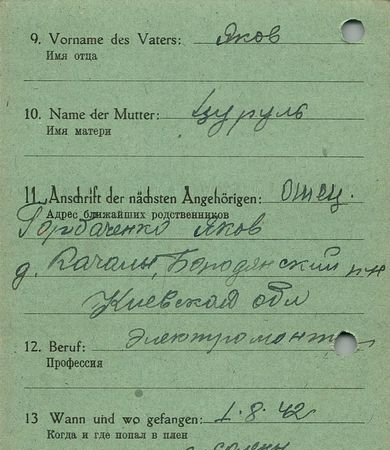 9. Vorname des Vaters: Яков
Имя отца
10. Name der Mutter: Цуруль
Имя матери
11. Anschrift der nächsten Angehörigen: Отец.
Адрес ближайших родственников
Горбаченко Яков
д. Качалы, Бородянский р-н
Киевская обл
12. Beruf: Электромонт
Профессия
13 Wann und wo gefangen: 1.8.42
Когда и где попал в плен